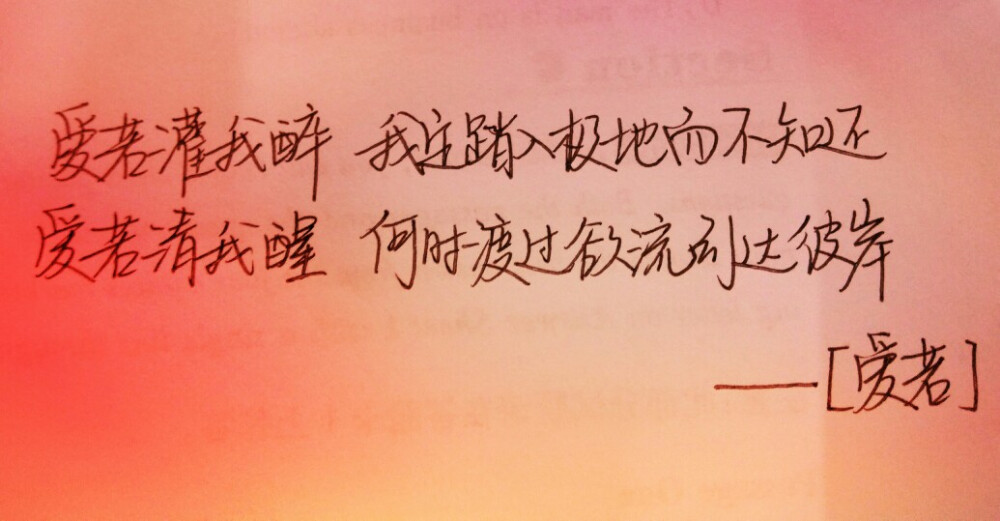 爱若灌我醉 我定踏入极地而不知还
爱若清我醒 何时渡过欲流到达彼岸
——[爱若]